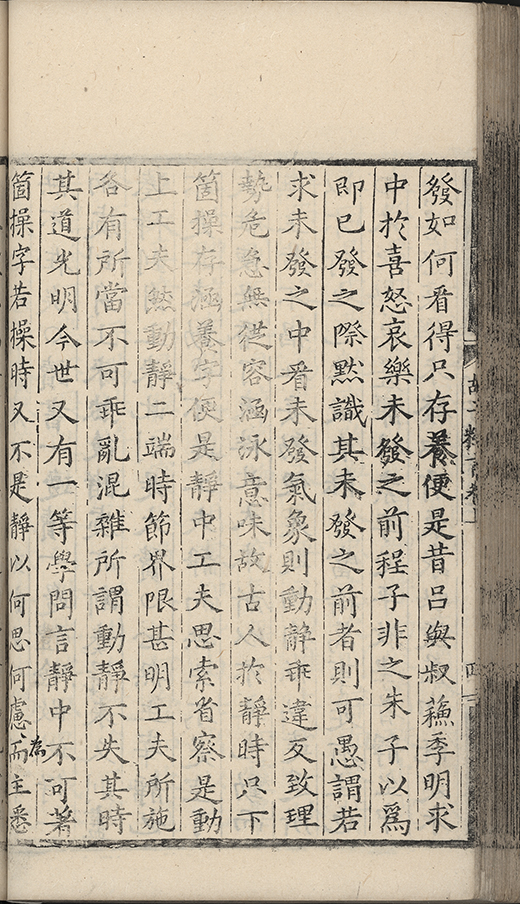 發如何看得只存養便是昔呂與叔蘓季明求
中於喜怒哀樂未發之前程子非之朱子以爲
即已發之際黙識其未發之前者則可愚謂若
求未發之中看未發氣象則動靜乖違反致理
勢危急無從容涵泳意味故古人於靜時只下
箇操存涵養字便是靜中工夫思索省察是動
上工夫然動靜二端時節界限甚明工夫所施
各有所當不可乖亂混雜所謂動靜不失其時
其道光明今世又有一等學問言靜中不可著
箇操字若操時又不是靜以何思何慮而主悉
為
胡子粹言卷一
四